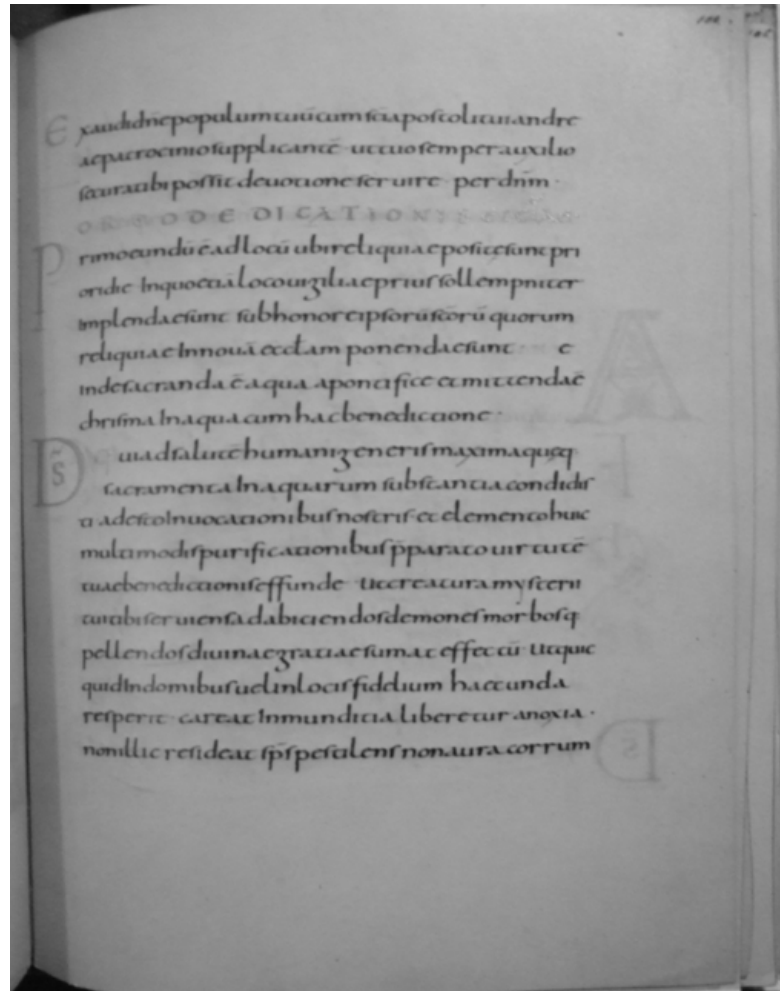 102
Exaudi dn̄e populum tuū cum sc̄i apostoli tui andre
ae patrocinio supplicantē ut tuo semper auxilio
secura tibi possit deuotione seruire per dnm̄
ORDO DEDICATIONIS
Primo eundū ē ad locū ubi reliquiae posite sunt pri
oridie In quo etiā loco uigiliae prius sollempniter
Implendae sunt sub honore ipsorū sc̄orū quorum
reliquiae In nouā eccl̄am ponendae sunt e
inde sacranda ē aqua a pontifice et mittenda ē
chrisma In aqua cum hac benedictione
Ds̄ qui ad salutē humani generis maxima queq
sacramenta In aquarum substantia condidis
ti adesto Inuocationibus nostris et elemento huic
multimodis purificationibus p̄parato uirtutē
tuae benedictionis effunde Ut creatura mysterii
tui tibi seruiens ad abiciendos demones morbosq
pellendos diuinae gratiae sumat effectū Ut quic
quid In domibus uel in locis fidelium haec unda
resperit careat Inmunditia liberetur a noxia
non illic resideat sp̄s pestilens non aura corrum